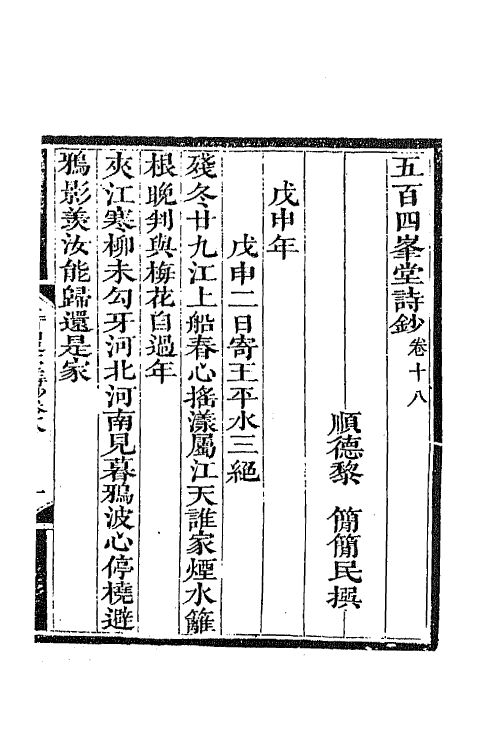 五百四峯堂詩鈔卷十八
順德黎　簡簡民撰
戊申年
戊申二日寄王平水三絕
殘冬廿九江上船春心搖漾屬江天誰家煙水籬
根晚判與梅花自過年
夾江寒柳未勾牙河北河南見暮鴉波心停橈避
鴉影羨汝能歸還是家